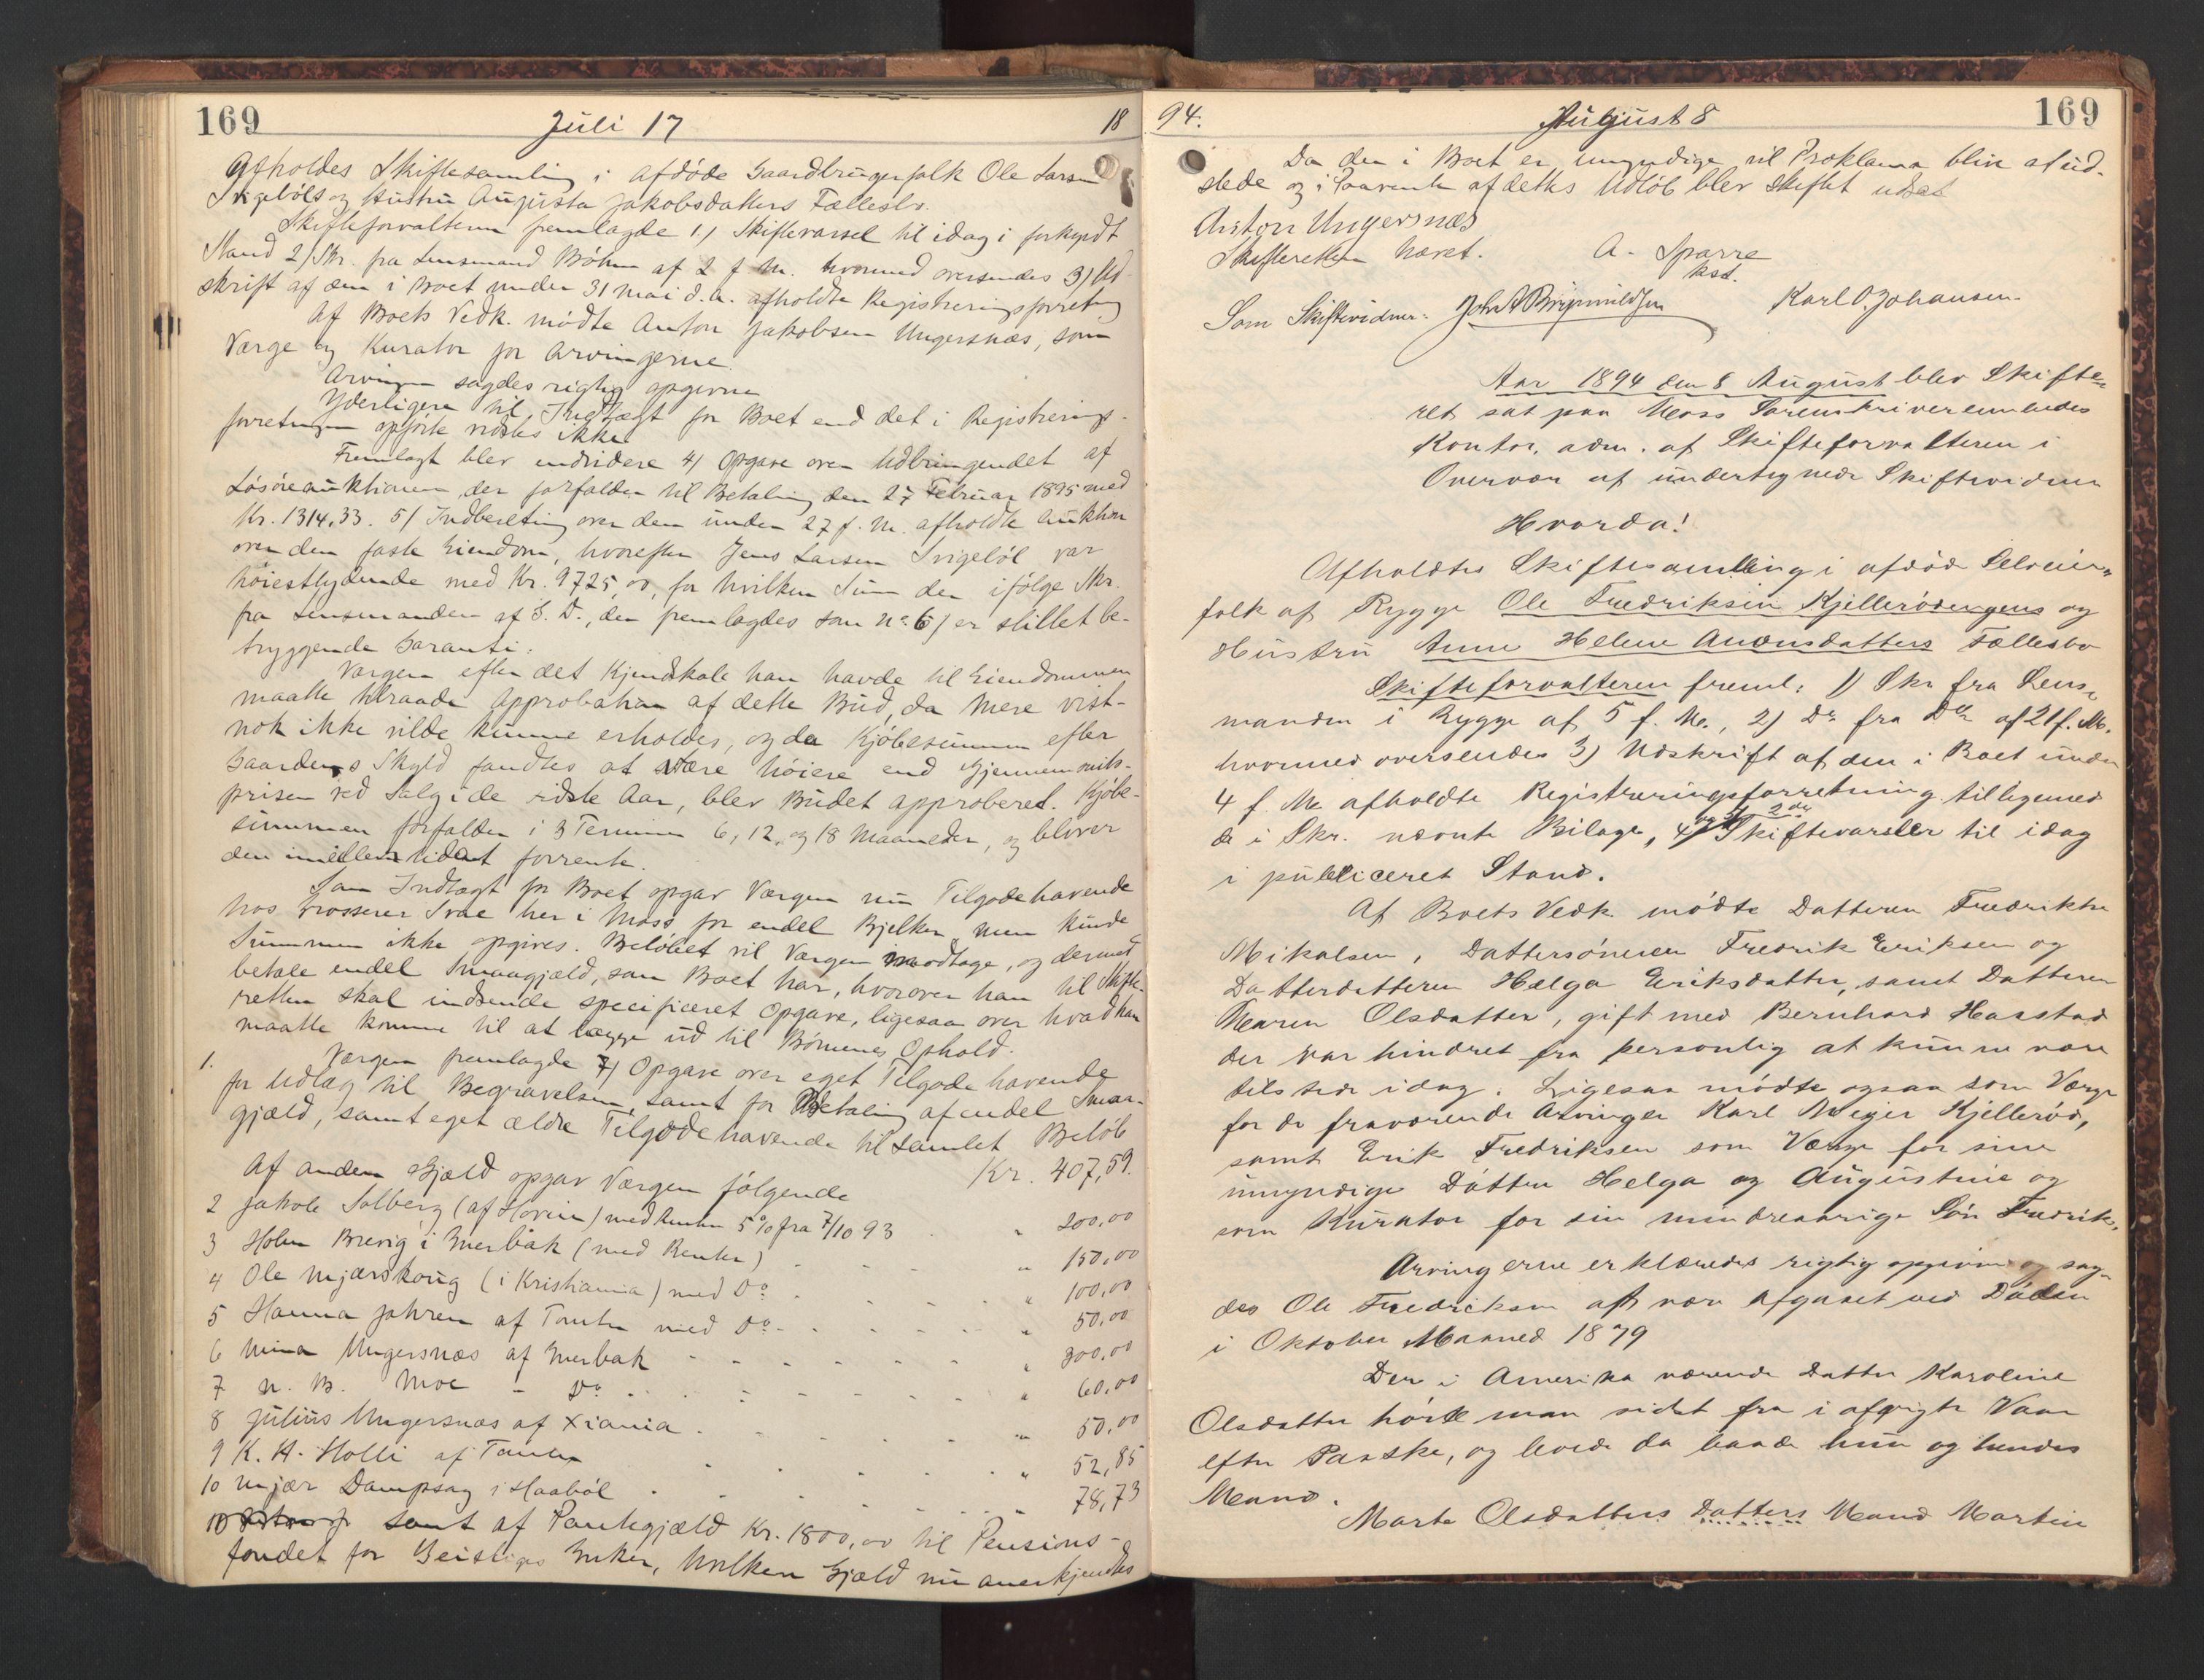 169 Juli 17 18
Afholdes Skiftesamling i afdøde Gaardbrugerfolk Ole Larsen
Svigeløls og Hustru Augusta Jakobsdatters Fællesbo.
Skifteforvalteren fremlagde 1) Skiftevarsel til idag i forkyndt
Stand 2) Skr. fra Lensmand Bøhm af 2 f. M. hvormed oversendes 3) Ud-
skrift af den i Boet under 31 Mai d. A. afholdte Registreringsforretng
Af Boets Vedk. mødte Anton Jakobsen Ungersnæs, som
Værge og Kurator for Arvingerne.
Arvingerne sagdes rigtig opgivne
Yderligere til Indtægt for Boet end det i Registrerings-
forretningen opførte vidstes ikke
Fremlagt blev endvidere 4) Opgave over Udbringendet af
Løsøreauktionen, der forfalder til Betaling den 27 Februar 1895 med
Kr. 1314,33. 5) Indberetning over den under 27 f. M. afholdte Auktion
over den faste Eiendom, hvorefter Jens Larsen Svigeløl var
høiestbydende med Kr. 9725,00, for hvilken Sum der ifølge Skr.
fra Lensmanden af S. D., der fremlagdes som No 6) er stillet be-
tryggende Garanti.
Værgen efter det Kjendskab han havde til Eiendommen
maatte tilraade Approbation af dette Bud, da mere vist-
nok ikke vilde kunne erholdes, og da Kjøbesummen efter
Gaardens Skyld fandtes at være høiere end Gjennemsnits-
prisen ved Salg i de sidste Aar, blev Budet approberet. Kjøbe-
summen forfalder i 3 Terminer 6, 12 og 18 Maaneder, og bliver
den imellemtident forrente.
Som Indtægt for Boet opgav Værgen nu Tilgodehavende
hos Grosserer Svae her i Moss for endel Bjelker men kunde
Summen ikke opgives. Beløbet vil Værgen modtage, og dermed
betale endel Smaagjæld, som Boet har, hvorover han til Skifte-
retten skal indsende specificeret Opgave, ligesaa over hvad han
maatte komme til at lægge ud til Børnenes Ophold.
1. Værgen fremlagde 7) Opgave over eget Tilgodehavende
for Udlæg til Begravelsen, samt for Betaling af endel Smaa-
gjæld, samt eget ældre Tilgodehavende til samlet Beløb
Kr. 407,59.
Af anden Gjæld opgav Værgen følgende
2 Jakob Solberg (af Hovin) med Renter 5% fra 7/10 93 " 200,00
3 Holm Brevig i Enerbak (med Renter) " 150,00
4 Ole Mjærskoug (i Kristiania) med Do " 100,00
5 Hanna Jahren af Tomter med Do " 50,00
6 Mina Ungersnæs af Enerbak " 300,00
7 N. B. Moe - Do " 60,00
8 Julius Ungersnæs af Xiania " 50,00
9 K. H. Holli af Tomter " 52,85
10 Mjær Dampsag i Haabøl " 78,73
10 samt af Pantegjæld Kr. 1800,00 til Pensions-
fondet for Geistliges Enker, hvilken Gjæld nu anerkjendtes
94. August 8 169
Da der i Boet er umyndige vil Proklama blive at ud-
stede og i Paavente af dettes Udløb blev Skiftet udsat
Anton Ungersnæs
Skifteretten hævet. A. Sparre
kst.
Som Skiftevidner. Karl O. Johansen.
Aar 1894 den 8 August blev Skifte-
ret sat paa Moss Sorenskriverembedes
Kontor, adm. af Skifteforvalteren i
Overvær af undertegnede Skiftevidner
Hvorda!
Afholdtes Skiftesamling i afdøde Selveier-
folk af Rygge Ole Fredriksen Kjellerødengens og
Hustru Anne Helene Amonsdatters Fællesbo
Skifteforvalteren freml: 1) Skr fra Lens-
manden i Rygge af 5 f. M., 2) Do fra Do af 21 f. M.
hvormed oversendes 3) Udskrift af den i Boet under
4 f. M. afholdte Registreringsforretning tilligemed
de i Skr. nævnte Bilage, 4) 2de Skiftevarsler til idag
i publiceret Stand.
Af Boets Vedk. mødte Datteren Fredrikke
Mikalsen, Dattersønnen Fredrik Eriksen og
Datterdatteren Hælga Eriksdatter, samt Datteren
Maren Olsdatter, gift med Bernhard Haastad
der var hindret fra personlig at kunne være
tilstede idag. Ligesaa mødte ogsaa som Værge
for de fraværende Arvinger Karl Meyer Kjellerød,
samt Erik Fredriksen som Værge for sine
umyndige Døttre Helga og Augustine og
som Kurator for sin mindreaarige Søn Fredrik.
Arvingerne erklæredes rigtig opgivne og sag-
des Ole Fredriksen at være afgaaet ved Døden
i Oktober Maaned 1879
Den i Amerika værende Datter Karoline
Olsdatter hørte man sidst fra i afvigte Vaar
efter Paaske, og levede da baade hun og hendes
Mand.
Marte Olsdatters Datters Mand Martin